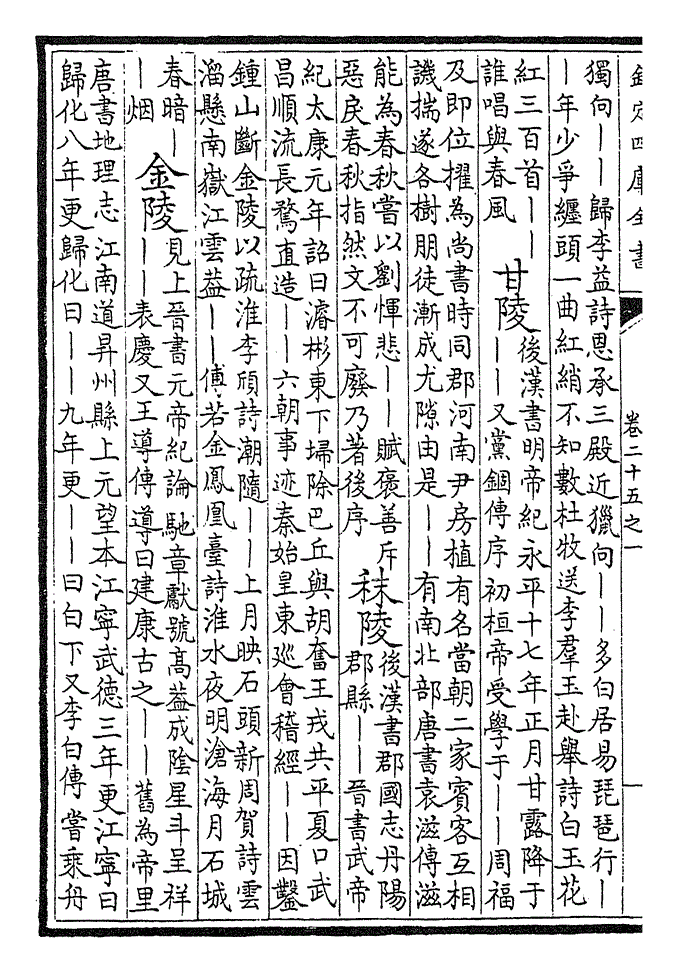 欽定四庫全書 卷二十五之一 一
獨向——歸李益詩恩承三殿近獵向——多白居易琵琶行—
—年少爭纏頭一曲紅綃不知數杜牧送李羣玉赴舉詩白玉花
紅三百首——
誰唱與春風
甘陵
後漢書明帝紀永平十七年正月甘露降于
——又黨錮傳序初桓帝受學于——周福
及即位擢為尚書時同郡河南尹房植有名當朝二家賓客互相
譏揣遂各樹朋徒漸成尤隙由是——有南北部唐書袁滋傳滋
能為春秋嘗以劉惲悲——賦褒善斥
惡戾春秋指然文不可廢乃著後序
秣陵
後漢書郡國志丹陽
郡縣——晉書武帝
紀太康元年詔曰濬彬東下埽除巴丘與胡奮王戎共平夏口武
昌順流長騖直造——六朝事迹秦始皇東廵會稽經——因鑿
鍾山斷金陵以疏淮李頎詩潮隨——上月映石頭新周賀詩雲
溜懸南嶽江雲葢——傅若金鳳凰臺詩淮水夜明滄海月石城
春暗—
—烟
金陵
見上晉書元帝紀論馳章獻號高葢成陰星斗呈祥
——表慶又王導傳導曰建康古之——舊為帝里
唐書地理志江南道昇州縣上元望本江寧武德三年更江寧曰
歸化八年更歸化曰——九年更——曰白下又李白傳嘗乘舟